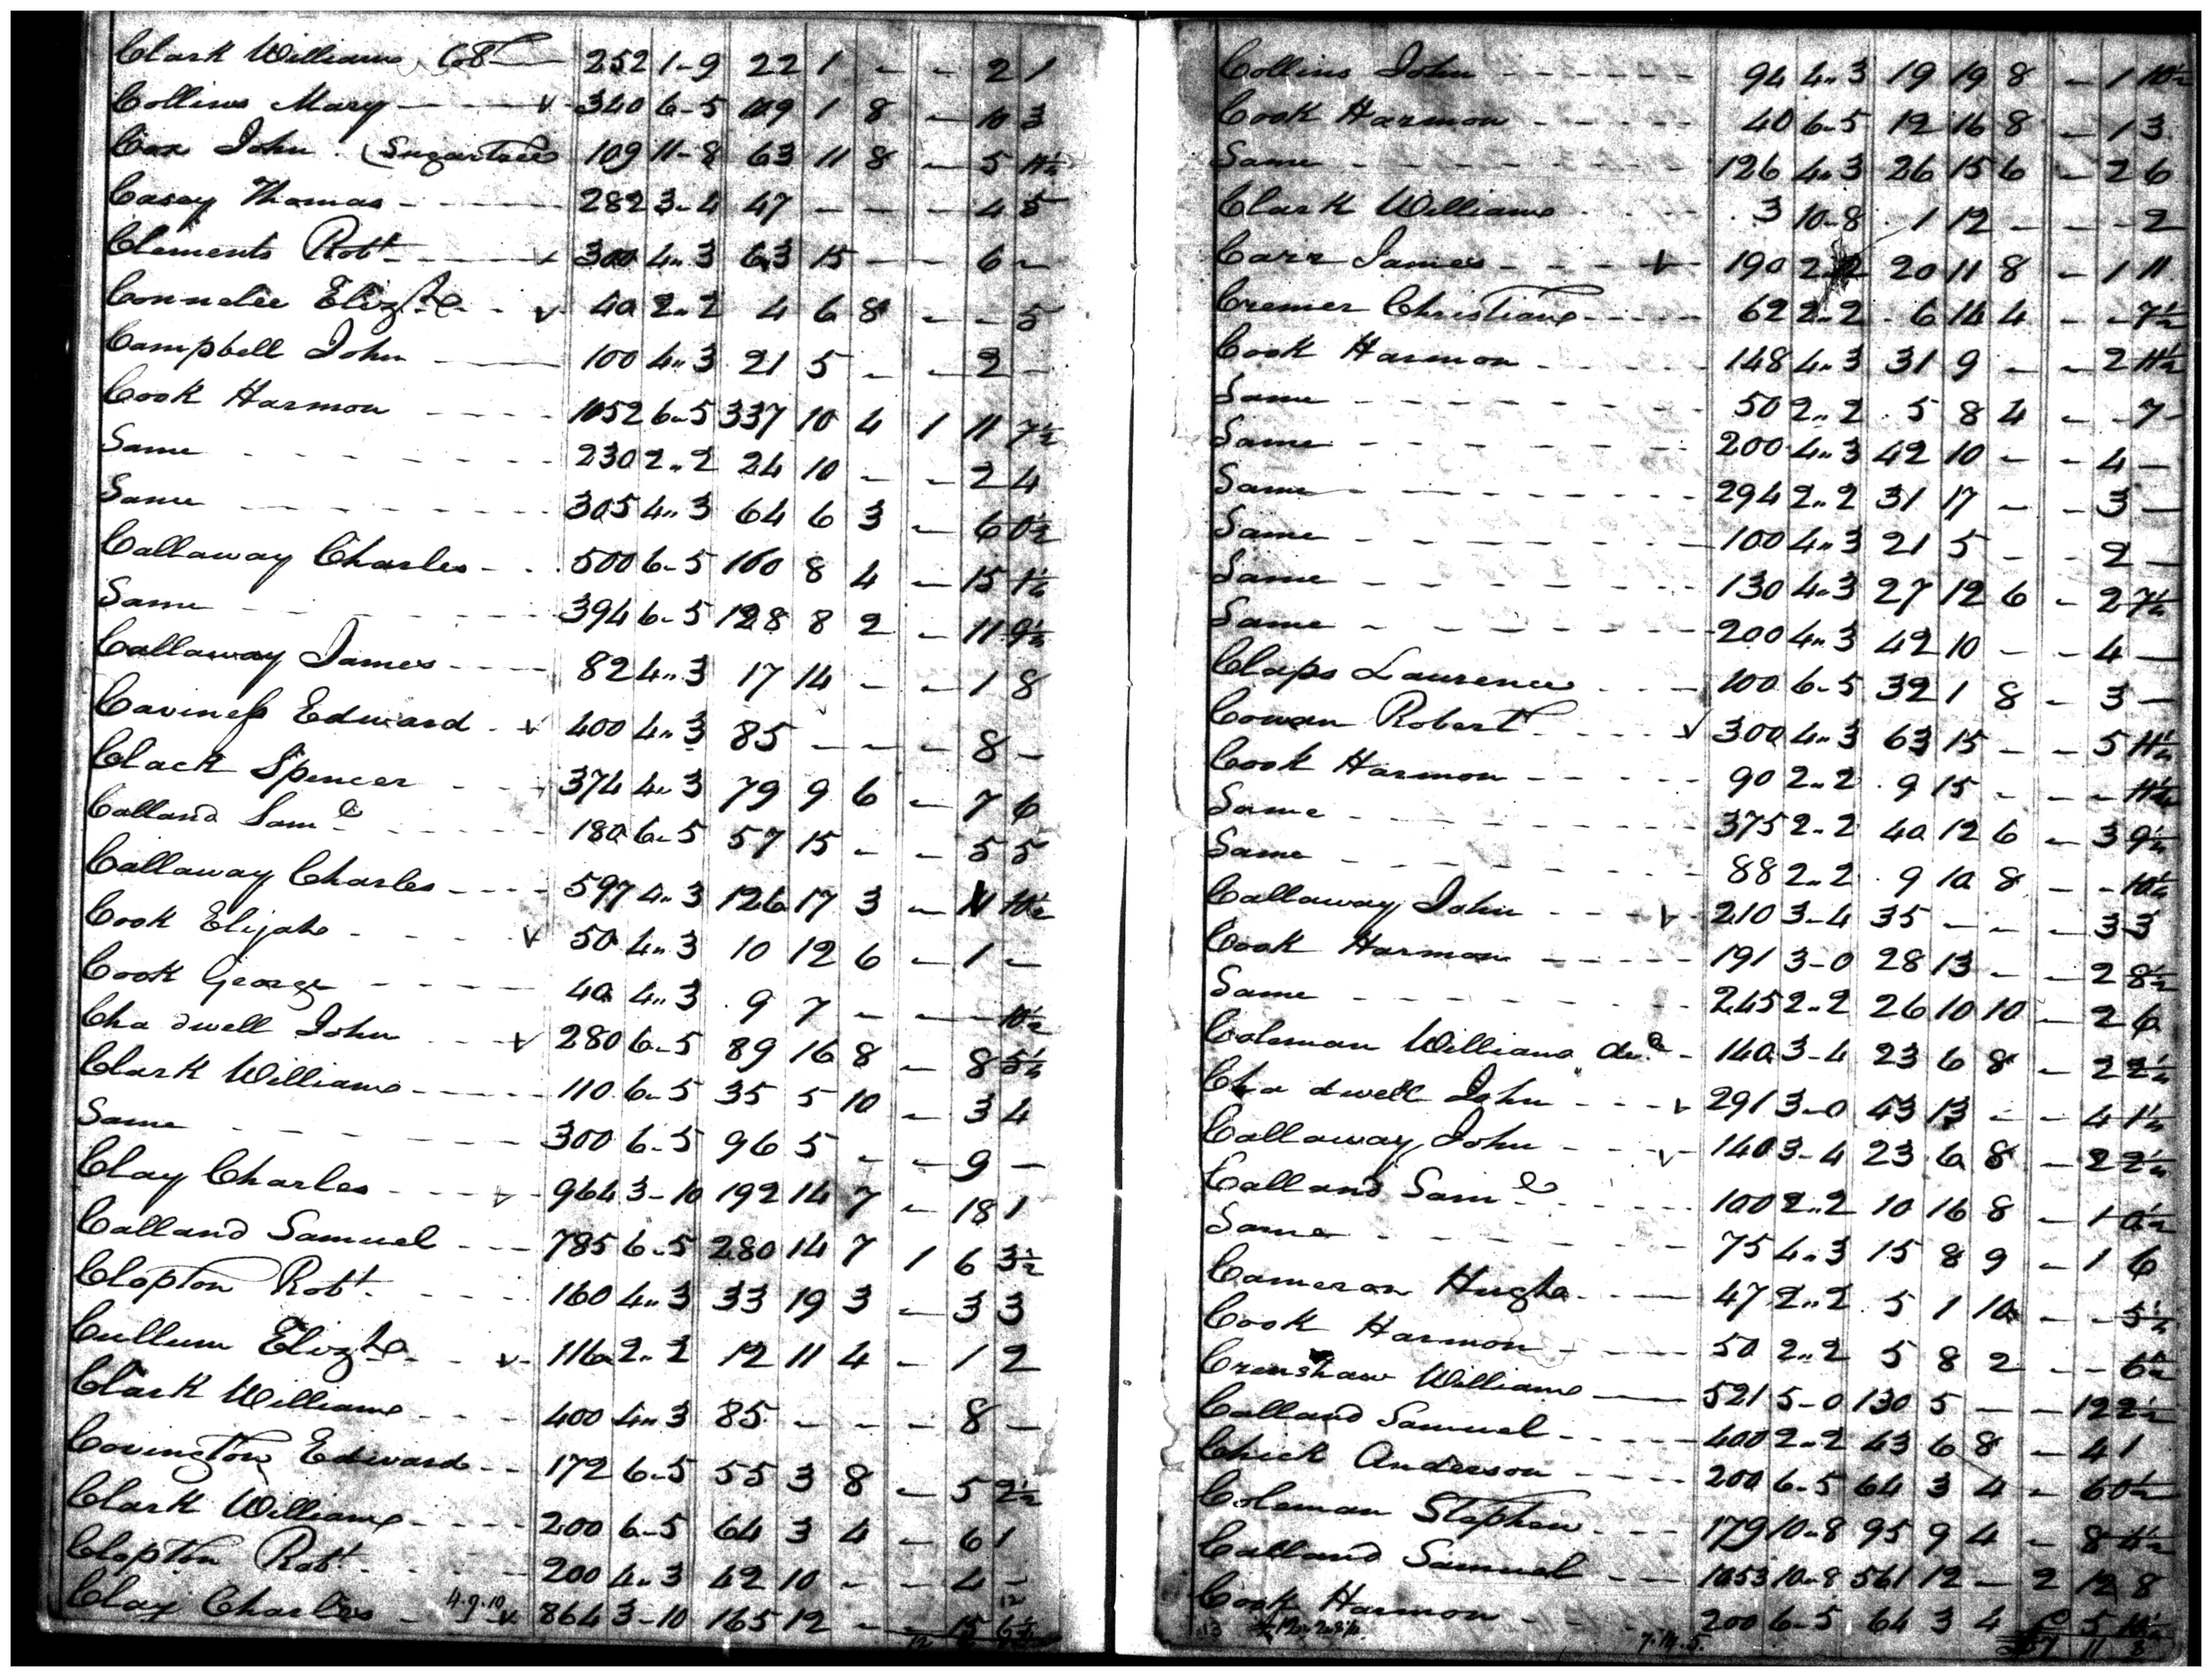 Clark William, Colo 252 1-9 22 1 - - 2 1
Collins Mary v 340 6-5 109 1 8 - 10 3
Cox John (Sugartree 109 11-8 63 11 8 - 5 11½
Casey Thomas 282 3-4 47 - - - 4 5
Clements Robt v 300 4"3 63 15 - - 6 -
Connelee Elizth v 40 2"2 4 6 8 - - 5
Campbell John 100 4"3 21 5 - - 2 -
Cook Harmon 1052 6-5 337 10 4 1 11 7½
Same 230 2"2 24 10 - - 2 4
Same 305 4"3 64 6 3 - 6 0½
Callaway Charles 500 6-5 160 8 4 - 15 1½
Same 394 6-5 128 8 2 - 11 9½
Callaway James 82 4"3 17 14 - - 1 8
Caviness Edward v 400 4"3 85 - - - 8 -
Clack Spencer 374 4"3 79 9 6 - 7 6
Calland Saml 180 6-5 57 15 - - 5 5
Callaway Charles 597 4"3 126 17 3 - 11 10½
Cook Elijah v 50 4"3 10 12 6 - 1 -
Cook George 40 4"3 9 7 - - - 10½
Chadwell John v 280 6-5 89 16 8 - 8 5½
Clark William 110 6-5 35 5 10 - 3 4
Same 300 6-5 96 5 - - 9 -
Clay Charles v 964 3-10 192 14 7 - 18 1
Calland Samuel 785 6-5 280 14 7 1 6 3½
Clopton Robt 160 4"3 33 19 3 - 3 3
Cullum Elizth v 116 2"2 12 11 4 - 1 2
Clark William 400 4"3 85 - - - 8 -
Covington Edward 172 6-5 55 3 8 - 5 2½
Clark William 200 6-5 64 3 4 - 6 1
Clopton Robt 200 4"3 42 10 - - 4 -
Clay Charles 4.9.10 v 864 3-10 165 12 - - 15 6½
Collins John 94 4"3 19 19 8 - 1 10½
Cook Harmon 40 6-5 12 16 8 - 1 3
Same 126 4"3 26 15 6 - 2 6
Clark William 3 10-8 1 12 - - - 2
Carr James v 190 2"2 20 11 8 - 1 11
Cremer Christian 62 2"2 6 14 4 - - 7½
Cook Harmon 148 4"3 31 9 - - 2 11½
Same 50 2"2 5 8 4 - - 7
Same 200 4"3 42 10 - - 4 -
Same 294 2"2 31 17 - - 3 -
Same 100 4"3 21 5 - - 2 -
Same 130 4"3 27 12 6 - 2 7½
Same 200 4"3 42 10 - - 4 -
Claps Laurence 100 6-5 32 1 8 - 3 -
Cowan Robert v 300 4"3 63 15 - - 5 11½
Cook Harmon 90 2"2 9 15 - - - 11½
Same 375 2"2 40 12 6 - 3 9½
Same 88 2"2 9 10 8 - - 10½
Callaway John v 210 3-4 35 - - - 3 3
Cook Harmon 191 3-0 28 13 - - 2 8½
Same 245 2"2 26 10 10 - 2 6
Coleman William decd 140 3-4 23 6 8 - 2 2½
Chadwell John v 291 3-0 43 13 - - 4 1½
Callaway John v 140 3-4 23 6 8 - 2 2½
Calland Saml 100 2"2 10 16 8 - 1 0½
Same 75 4"3 15 8 9 - 1 6
Cameron Hugh 47 2"2 5 1 10 - - 5½
Cook Harmon 50 2"2 5 8 2 - - 6½
Crenshaw William 521 5-0 130 5 - - 12 2½
Calland Samuel 400 2"2 43 6 8 - 4 1
Chick Anderson 200 6-5 64 3 4 - 6 0½
Coleman Stephen 179 10-8 95 9 4 - 8 11½
Calland Samuel 1053 10-8 561 12 - 2 12 8
Cook Harmon 200 6-5 64 3 4 5 10½